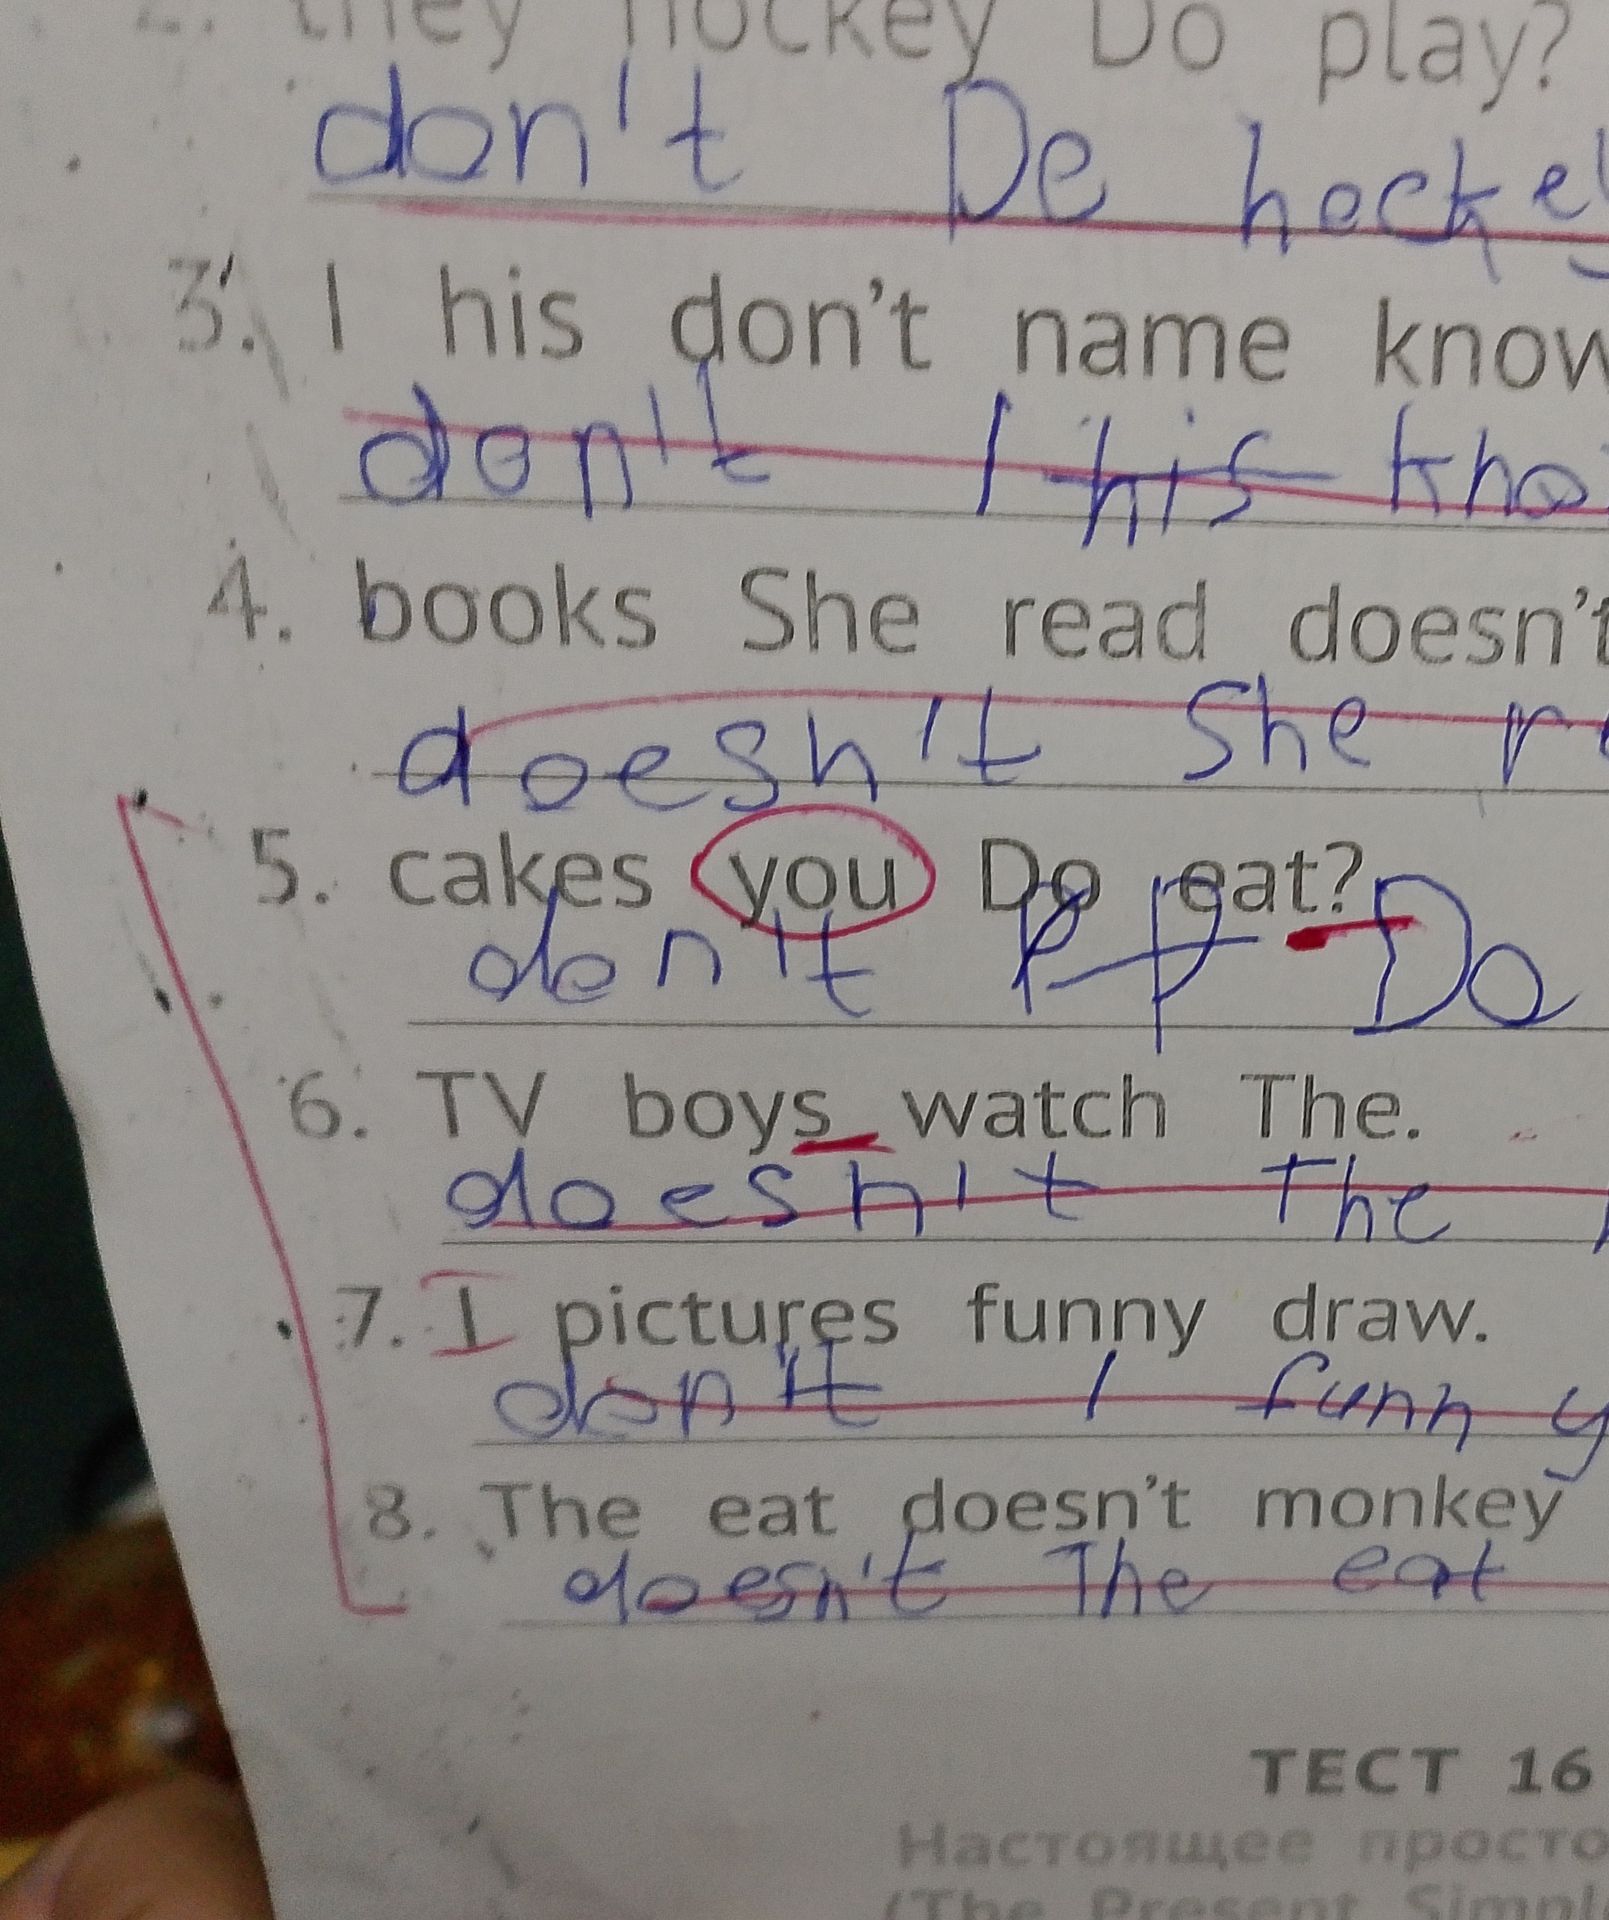 they hockey Do play?
don't De hockey
3. I his don't name know
don't I his kno
4. books She read doesn't
doesn't She r
5. cakes you Do eat?
don't Do
6. TV boys watch The.
doesn't The
7. I pictures funny draw.
don't I funny
8. The eat doesn't monkey
doesn't The eat
ТЕСТ 16
Настоящее просто
(The Present Simple